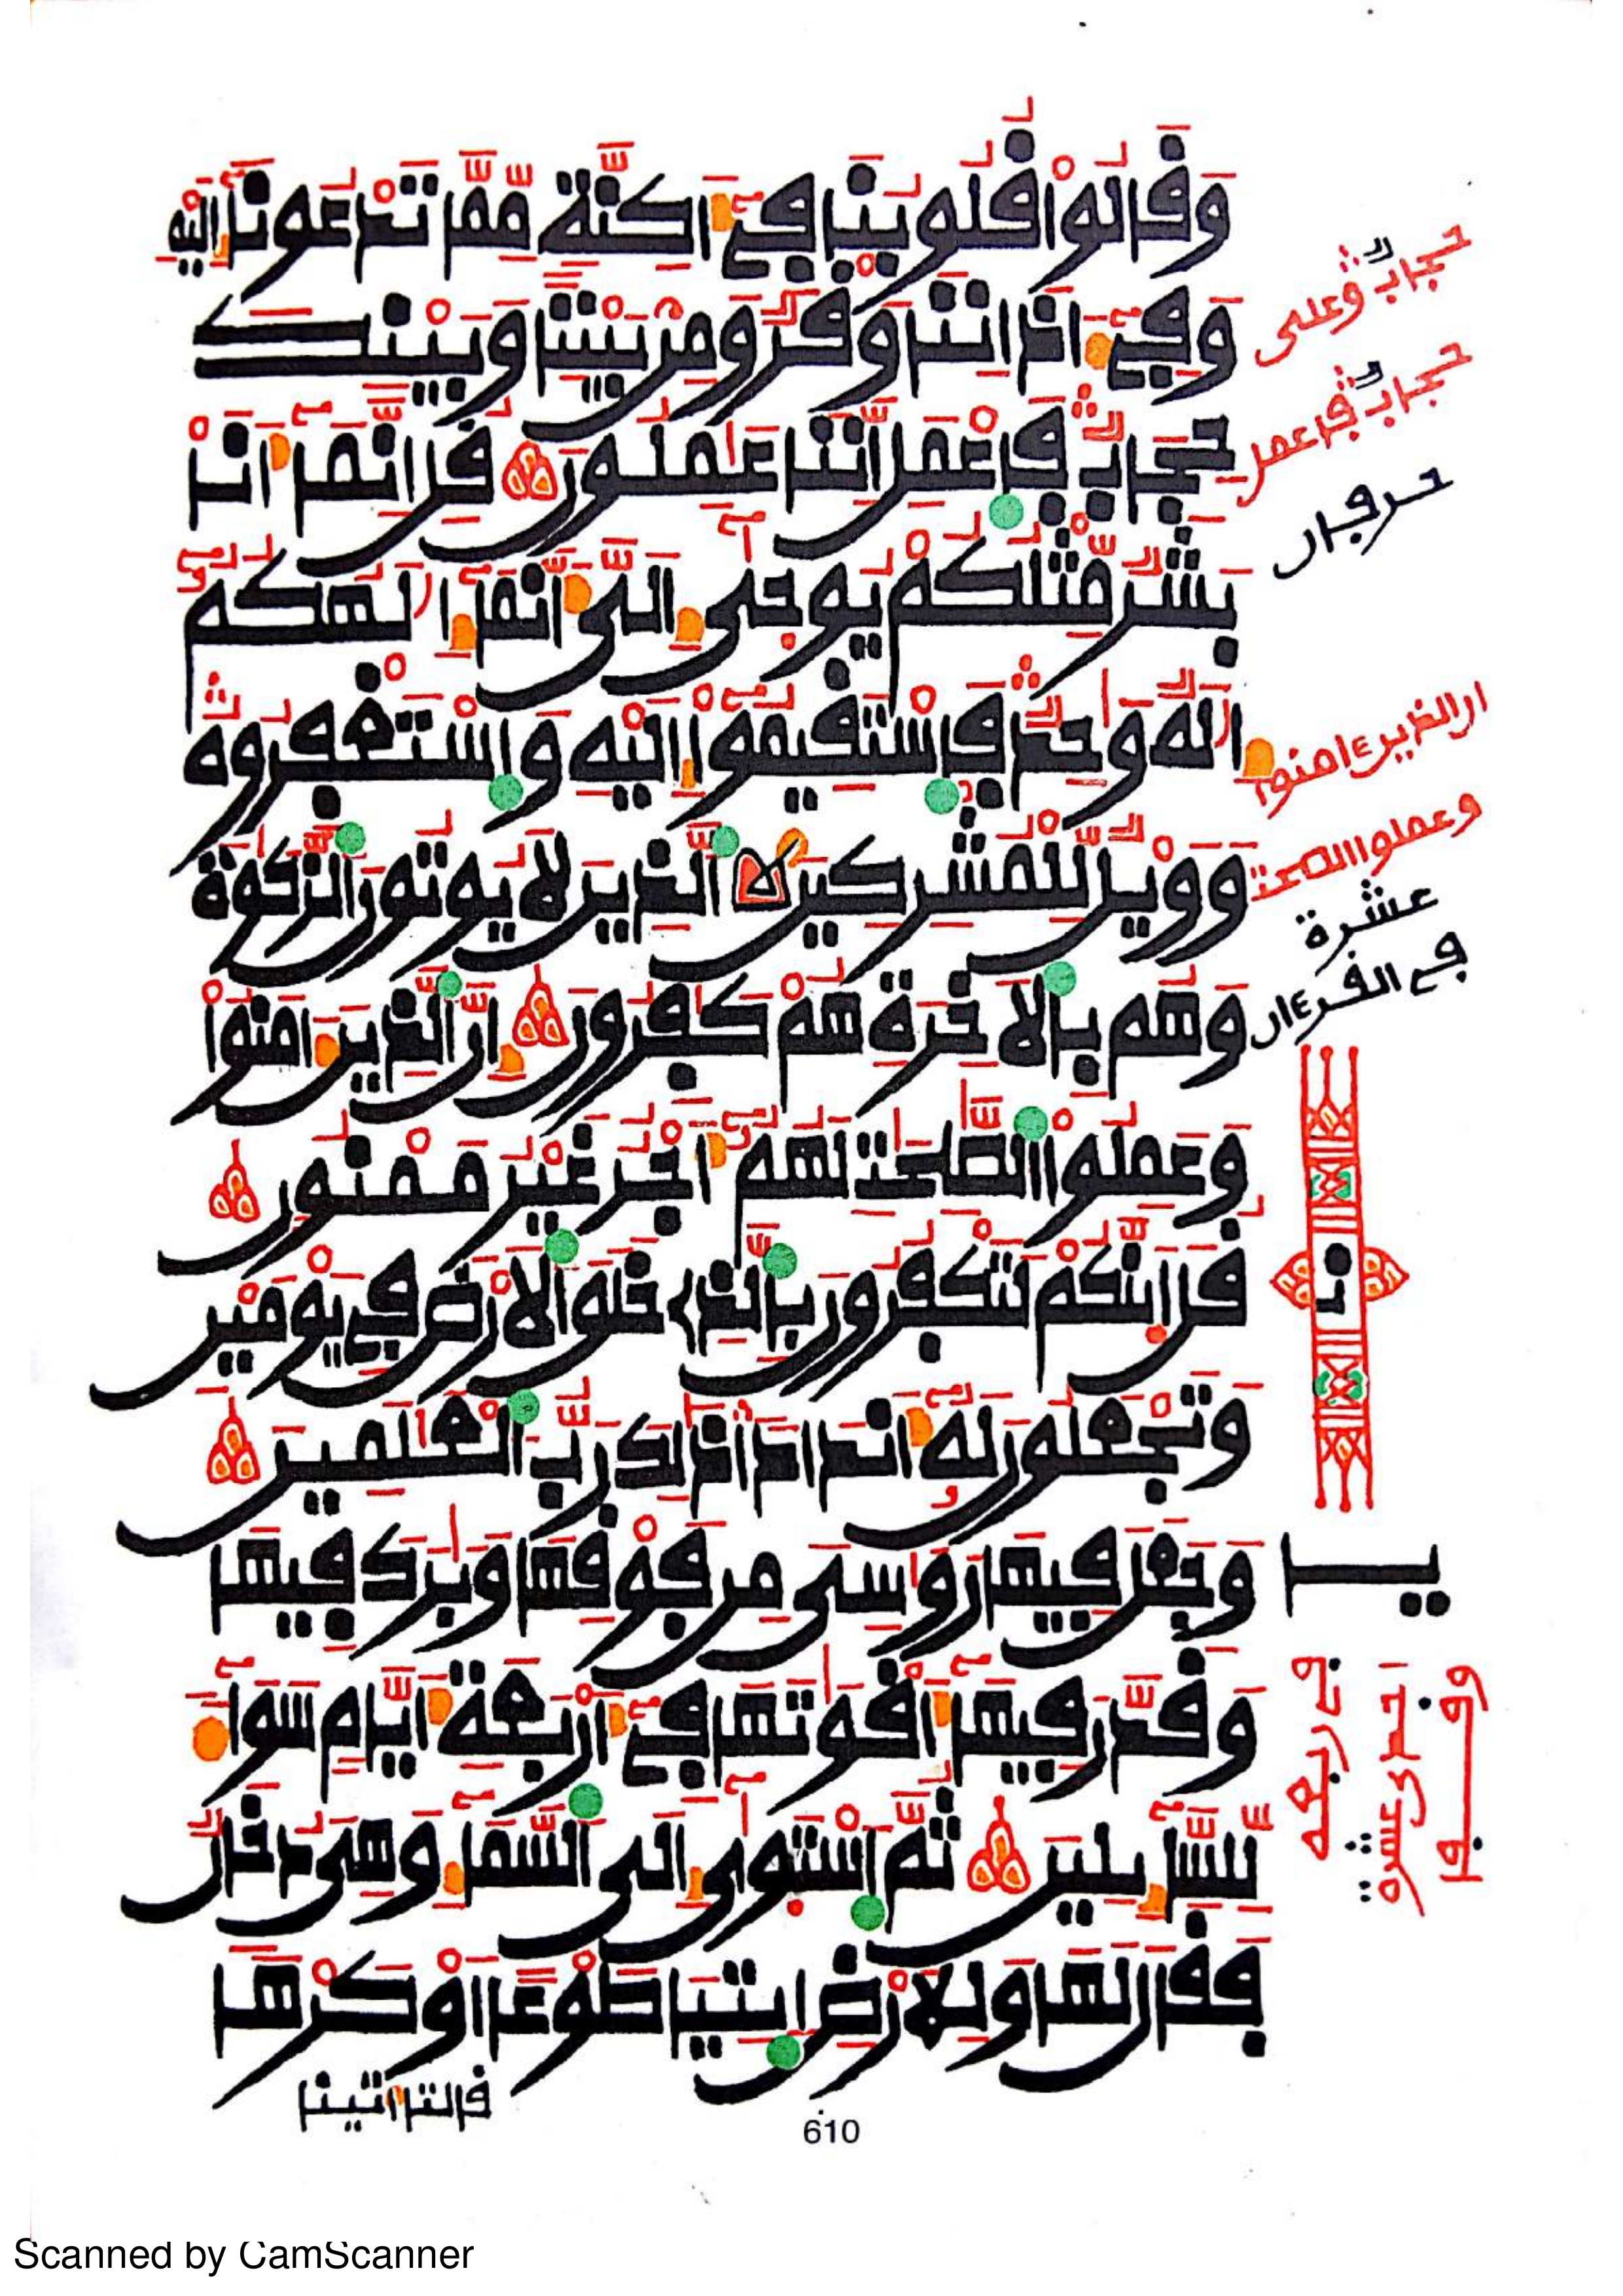 وَقَالُوا قُلُوبُنَا فِي أَكِنَّةٍ مِّمَّا تَدْعُونَا إِلَيْهِ
وَفِي ءَاذَانِنَا وَقْرٌ وَمِن بَيْنِنَا وَبَيْنِكَ
حِجَابٌ فَاعْمَلِ انَّنَا عَٰمِلُونَ قُلِ انَّمَا أَنَا
بَشَرٌ مِّثْلُكُمْ يُوحَىٰ إِلَيَّ أَنَّمَا إِلَٰهُكُمُ
إِلَٰهٌ وَٰحِدٌ فَاسْتَقِيمُوا إِلَيْهِ وَاسْتَغْفِرُوهُ
وَوَيْلٌ لِّلْمُشْرِكِينَ لا الَّذِينَ لَا يُوتُونَ الزَّكَوٰةَ
وَهُم بِالَاخِرَةِ هُمْ كَٰفِرُونَ إِنَّ الَّذِينَ ءَامَنُوا
وَعَمِلُوا الصَّٰلِحَٰتِ لَهُمُ أَجْرٌ غَيْرُ مَمْنُونٍ
قُلَ ا۪نَّكُمْ لَتَكْفُرُونَ بِالَّذِي خَلَقَ الَارْضَ فِي يَوْمَيْنِ
وَتَجْعَلُونَ لَهُ أَندَادًا ذَٰلِكَ رَبُّ الْعَٰلَمِينَ
وَجَعَلَ فِيهَا رَوَٰسِيَ مِن فَوْقِهَا وَبَٰرَكَ فِيهَا
وَقَدَّرَ فِيهَا أَقْوَٰتَهَا فِي أَرْبَعَةِ أَيَّامٍ سَوَاءً
لِّلسَّائِلِينَ ثُمَّ اسْتَوَىٰ إِلَى السَّمَاءِ وَهِيَ دُخَانٌ
فَقَالَ لَهَا وَلِلَارْضِ ا۪يتِيَا طَوْعًا اَوْ كَرْهًا
قالتا أتينا
حجابٌ وعلى
حجابٌ فاعمل
حرفان
ان الذين ءامنوا
وعملوا الصلحت
عشرة
في القرءان
610
Scanned by CamScanner